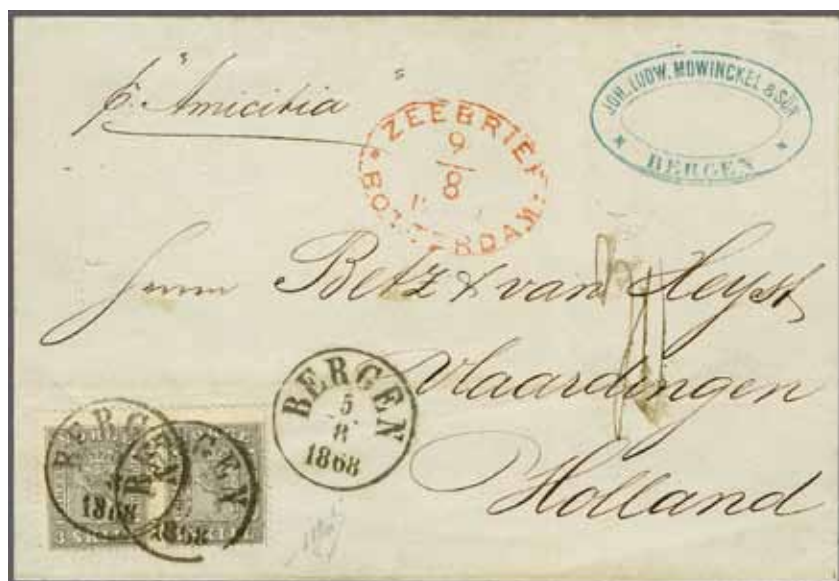 p. "Amicitia"
ZEEBRIEF
9
8
ROTTERDAM
JOH. LUDW. MOWINCKEL & SØN
BERGEN
Herrn Betz & van Heyst
Vlaardingen
Holland
BERGEN
5
8
1868
BERGEN
1868
BERGEN
1868
3